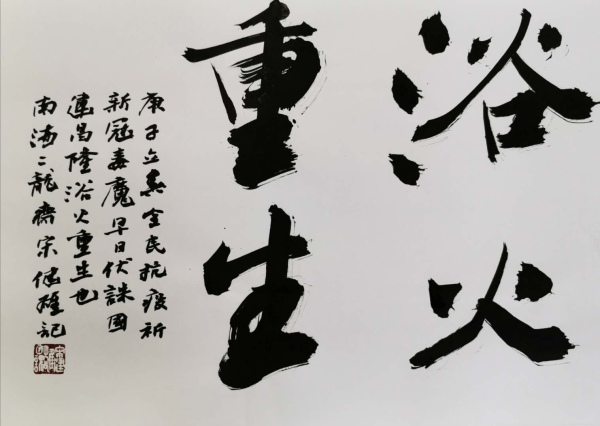 浴火
重生
庚子立春全民抗疫祈
新冠毒魔早日伏誅國
連昌隆浴火重生也
南海二龍齋宋健雄記